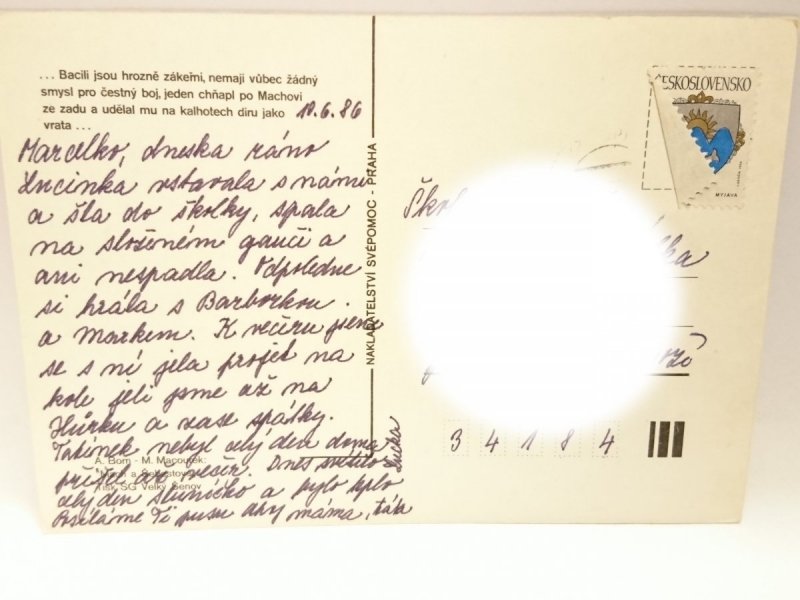 ... Bacili jsou hrozně zákeřní, nemají vůbec žádný
smysl pro čestný boj, jeden chňapl po Machovi
ze zadu a udělal mu na kalhotech díru jako
vrata ...
10.6.86
Marcelko, dneska ráno
Lucinka vstavala s námi
a šla do školky, spala
na složeném gauči a
ani nespadla. Odpoledne
si hrála s Barborkou
a Markem. K večeru jsme
se s ní jela projet na
kole jeli jsme až na
Hůrku a zase spátky.
Tatínek nebyl celý den doma
přišel až večer. Dnes svítilo
celý den sluníčko a bylo teplo
Posíláme Ti pusu máma, táta
Lucka
A. Born - M. Macourek:
Mach a Šebestová
Tisk SG Velký Šenov
NAKLADATELSTVÍ SVÉPOMOC - PRAHA
ČESKOSLOVENSKO
MYJAVA
Ško
lka
34184